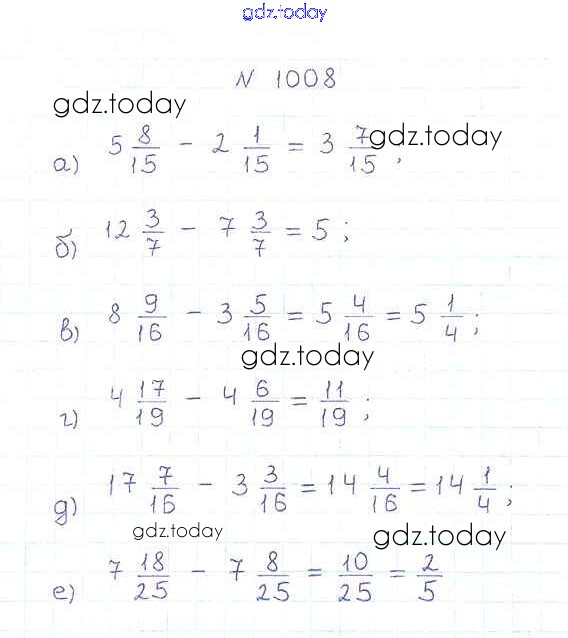 gdz.today
N 1008
gdz.today
а) 5 8/15 - 2 1/15 = 3 7/15 ;
gdz.today
б) 12 3/7 - 7 3/7 = 5 ;
в) 8 9/16 - 3 5/16 = 5 4/16 = 5 1/4 ;
gdz.today
г) 4 17/19 - 4 6/19 = 11/19 ;
д) 17 7/16 - 3 3/16 = 14 4/16 = 14 1/4 ;
gdz.today
gdz.today
е) 7 18/25 - 7 8/25 = 10/25 = 2/5